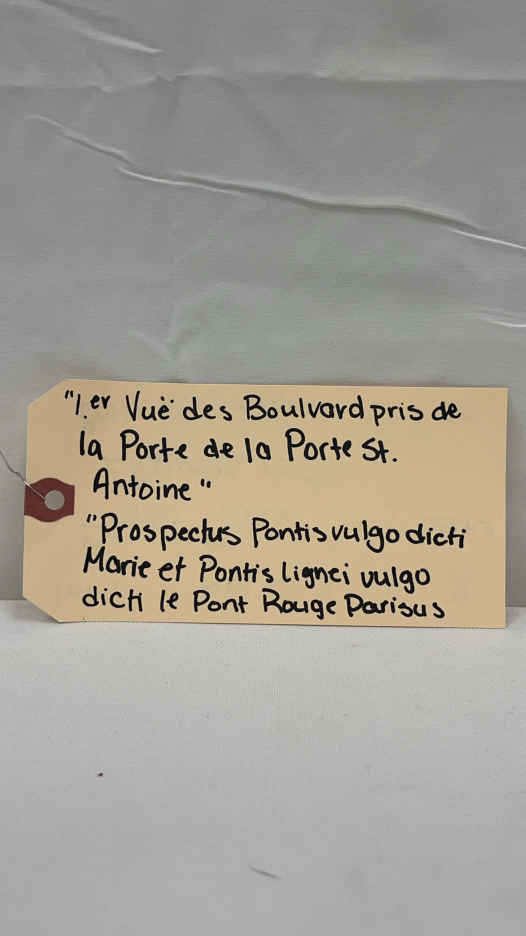 "1.er Vuë des Boulvard pris de
la Porte de la Porte St.
Antoine"
"Prospectus Pontis vulgo dicti
Marie et Pontis lignei vulgo
dicti le Pont Rouge Parisus